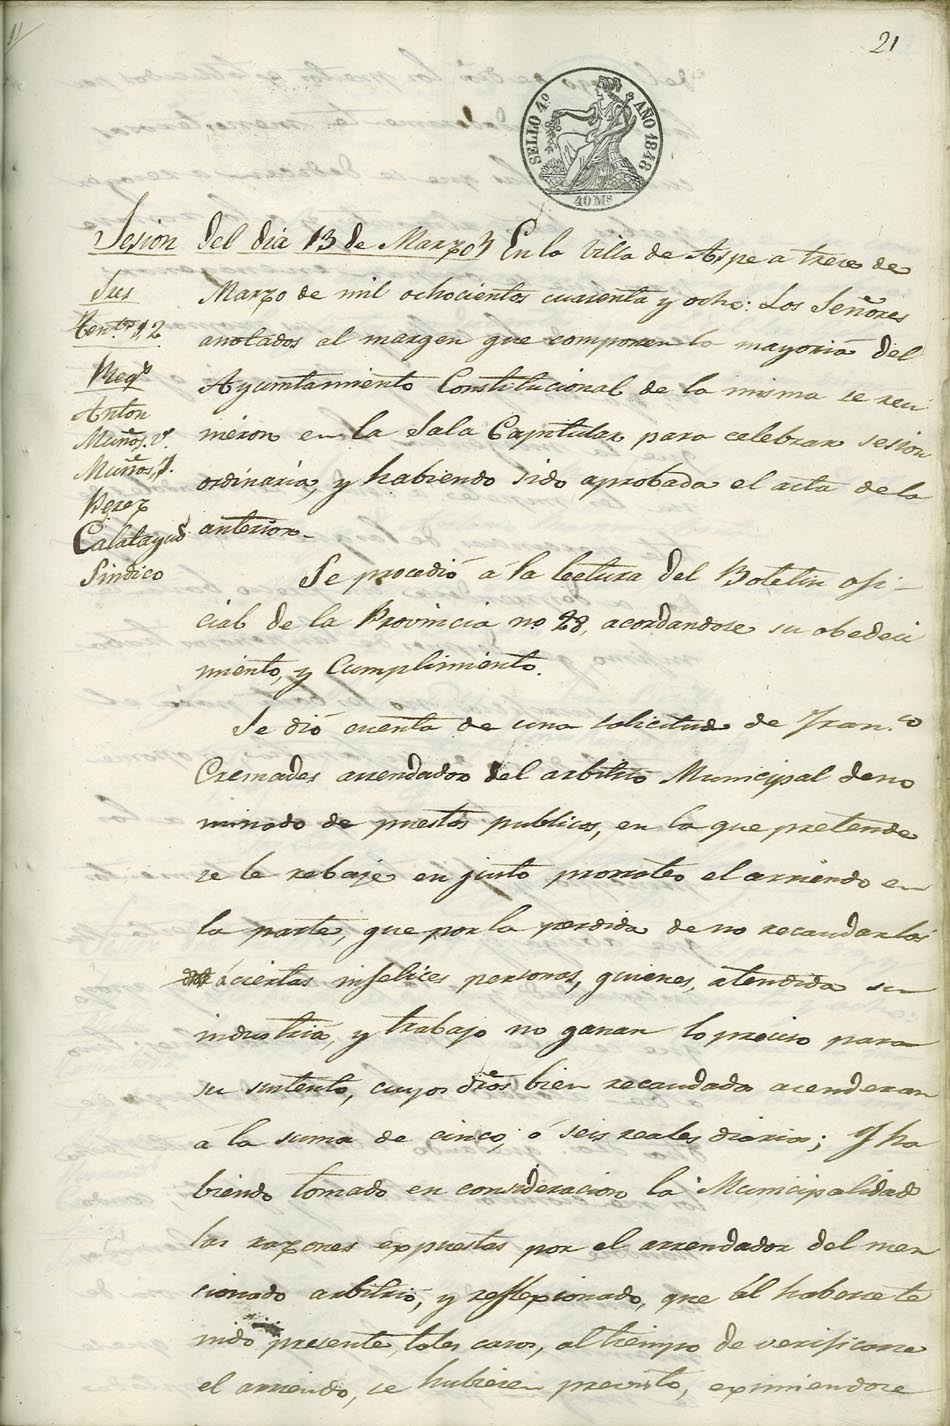 21
SELLO 4º AÑO 1848
40 Ms
Sesion del dia 13 de Marzo En la Villa de Aspe a trece de
Marzo de mil ochocientos cuarenta y ocho: Los Señores
anotados al margen que componen la mayoria del
Ayuntamiento Constitucional de la misma se reu
nieron en la Sala Capitular para celebrar sesion
ordinaria, y habiendo sido aprobada el acta de la
anterior.
Sres
Tentes 1 2
Regs
Anton
Muños, V.
Muños, J.
Perez
Calatayud
Sindico
Se procedió á la lectura del Boletin ofi-
cial de la Provincia nº 28, acordandose su obedeci
miento, y Cumplimiento.
Se dió cuenta de una solicitud de Fran.co
Cremades arrendador del arbitrio Municipal deno
minado de puestos publicos, en la que pretende
se le rebaje en justo prorrateo el arriendo en
la parte, que por la perdida de no recaudarlos
á ciertas infelices personas, quienes, atendida su
industria, y trabajo no ganan lo preciso para
su sustento, cuyos dros bien recaudados acenderan
á la suma de cinco, ó seis reales diarios; Y ha
biendo tomado en consideracion la Municipalidad
las razones expuestas por el arrendador del men
cionado arbitrio, y reflexionado, que él haberse te
nido presente, tales casos, al tiempo de verificarse
el arriendo, se hubieren previsto, eximiendose